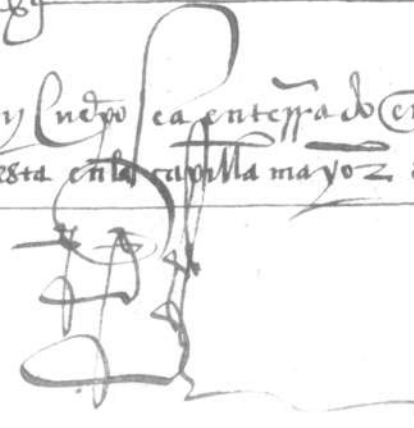 y Cuerpo sea enterrado en
esta en la capilla mayoz